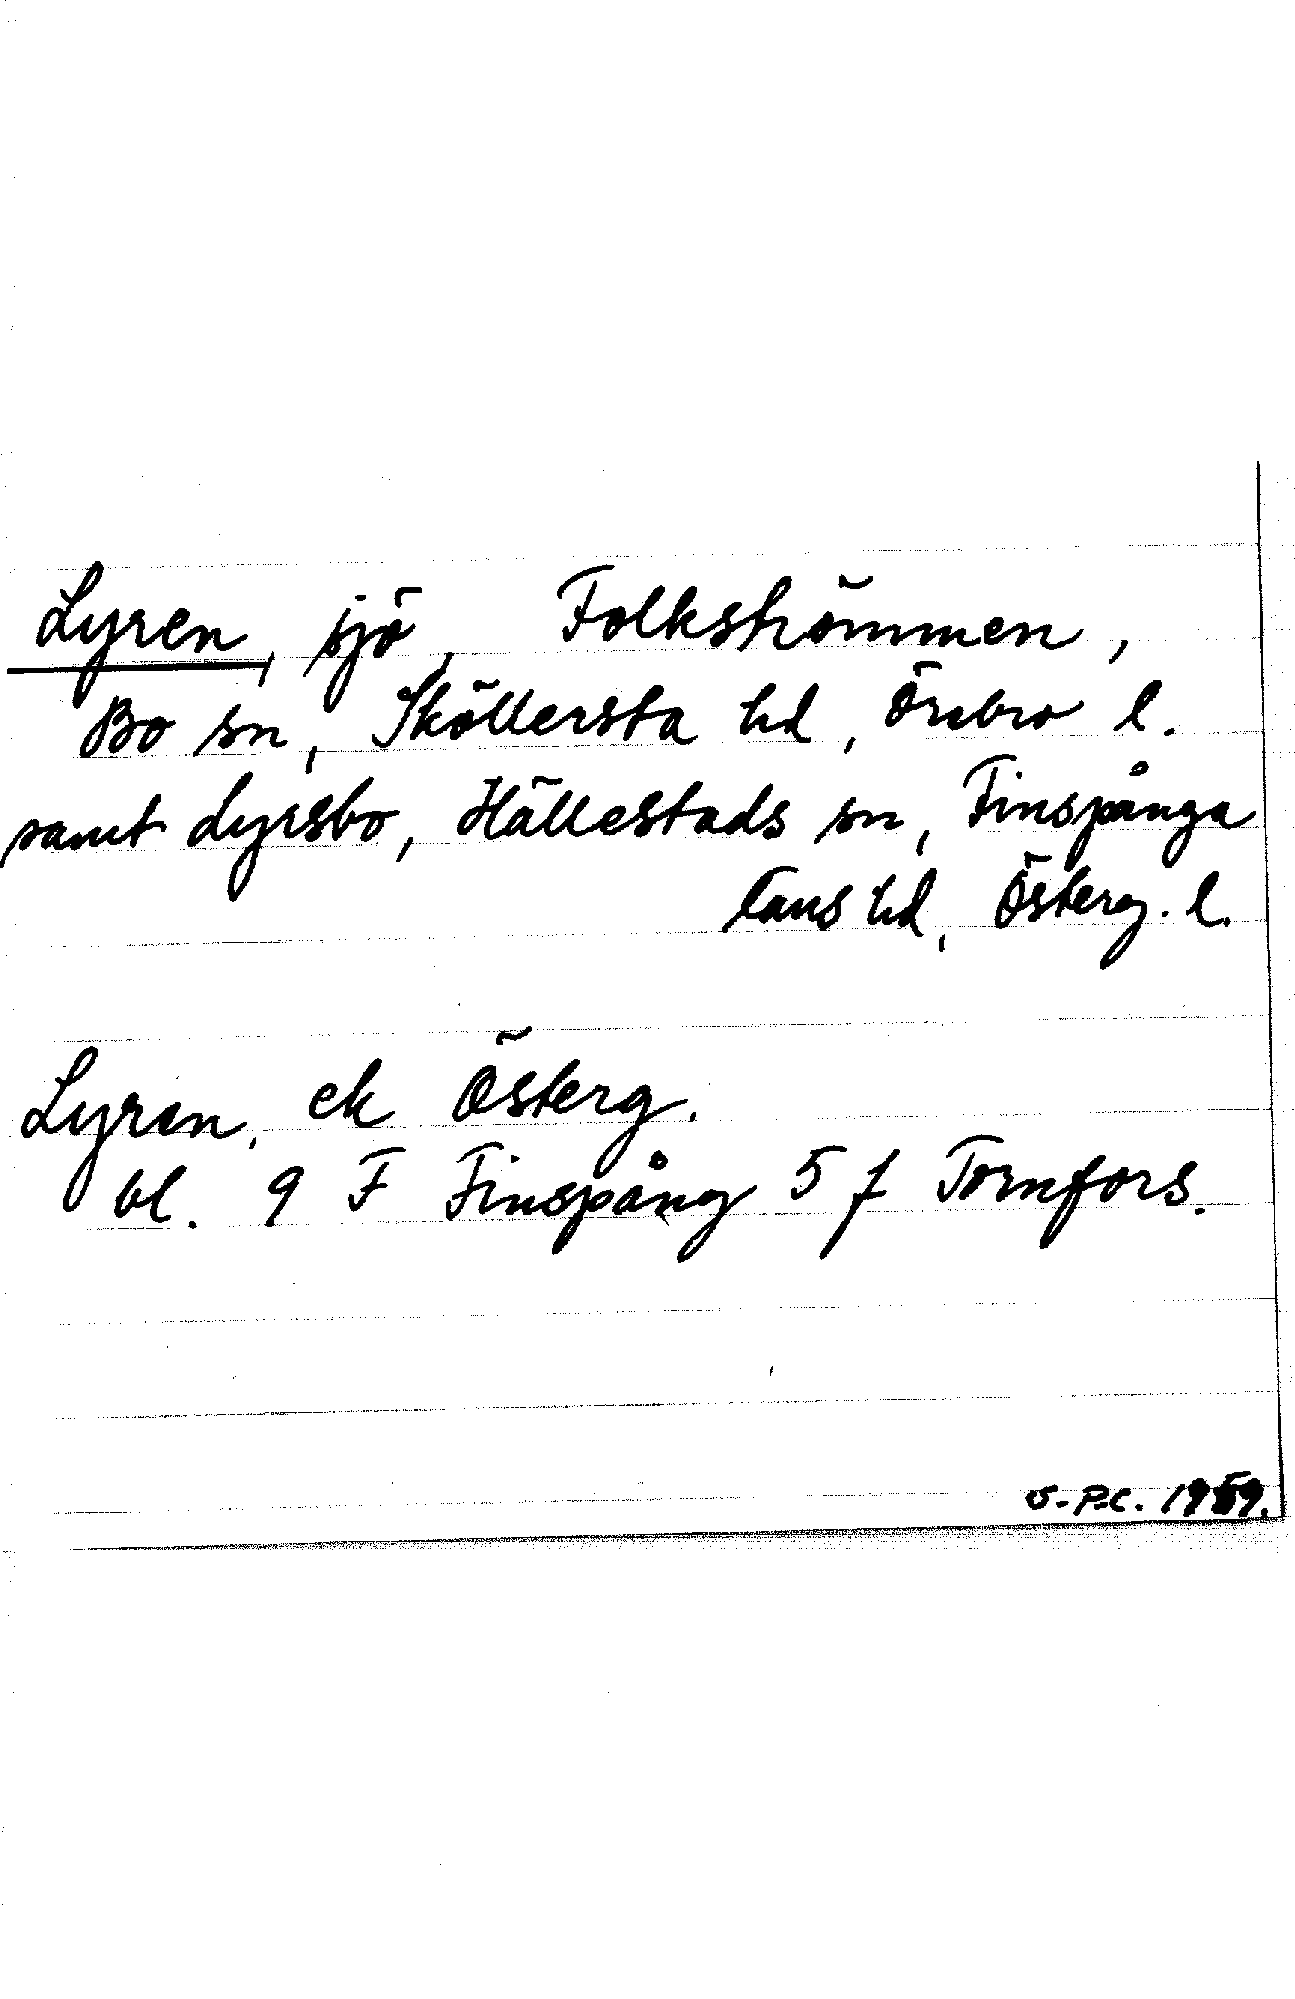 Lyren, sjö, Folkströmmen,
Bo sn, Sköllersta hd, Örebro l.
samt Lyrsbo, Hällestads sn, Finspånga
läns hd, Österg. l.
Lyren, ek Österg.
bl. 9 F Finspång 5 f Tornfors.
1959.